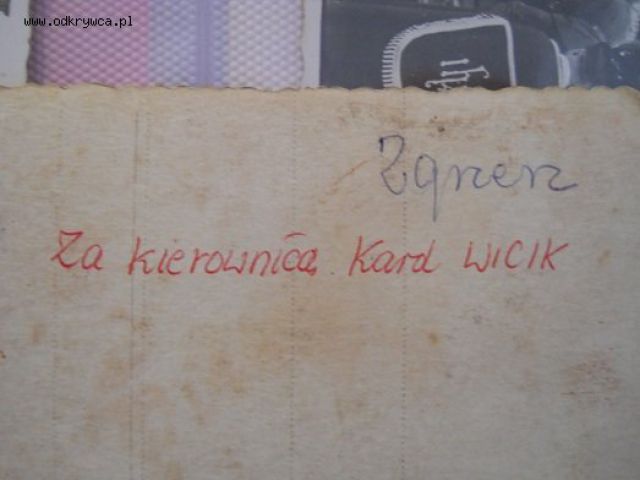 www.odkrywca.pl
Za kierownicą Karol WICIK